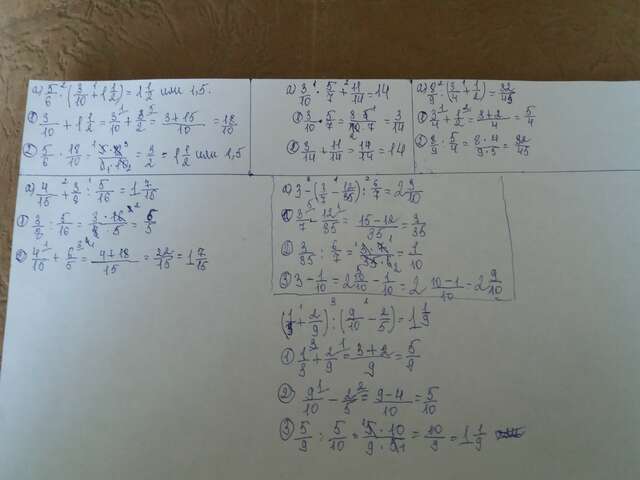 а) 5/6 · (3/10 + 1 1/2) = 1 1/2 или 1,5.
① 3/10 + 1 1/2 = 3/10 + 3/2 = (3+15)/10 = 18/10
② 5/6 · 18/10 = (5·18)/(6·10) = 3/2 = 1 1/2 или 1,5
а) 3/10 · 5/7 + 11/14 = 14
① 3/10 · 5/7 = (3·5)/(10·7) = 3/14
② 3/14 + 11/14 = 14/14 = 14
а) 8/9 · (3/4 + 1/2) = 32/45
① 3/4 + 1/2 = (3+2)/4 = 5/4
② 8/9 : 5/4 = (8·4)/(9·5) = 32/45
а) 4/15 + 3/8 : 5/16 = 1 7/15
① 3/8 : 5/16 = (3·16)/(8·5) = 6/5
② 4/15 + 6/5 = (4+18)/15 = 22/15 = 1 7/15
а) 3 - (3/7 - 12/35) : 6/7 = 2 9/10
① 3/7 - 12/35 = (15-12)/35 = 3/35
② 3/35 : 6/7 = (3·7)/(35·6) = 1/10
③ 3 - 1/10 = 2 10/10 - 1/10 = 2 (10-1)/10 = 2 9/10
(1/3 + 2/9) : (9/10 - 2/5) = 1 1/9
① 1/3 + 2/9 = (3+2)/9 = 5/9
② 9/10 - 2/5 = (9-4)/10 = 5/10
③ 5/9 : 5/10 = (5·10)/(9·5) = 10/9 = 1 1/9